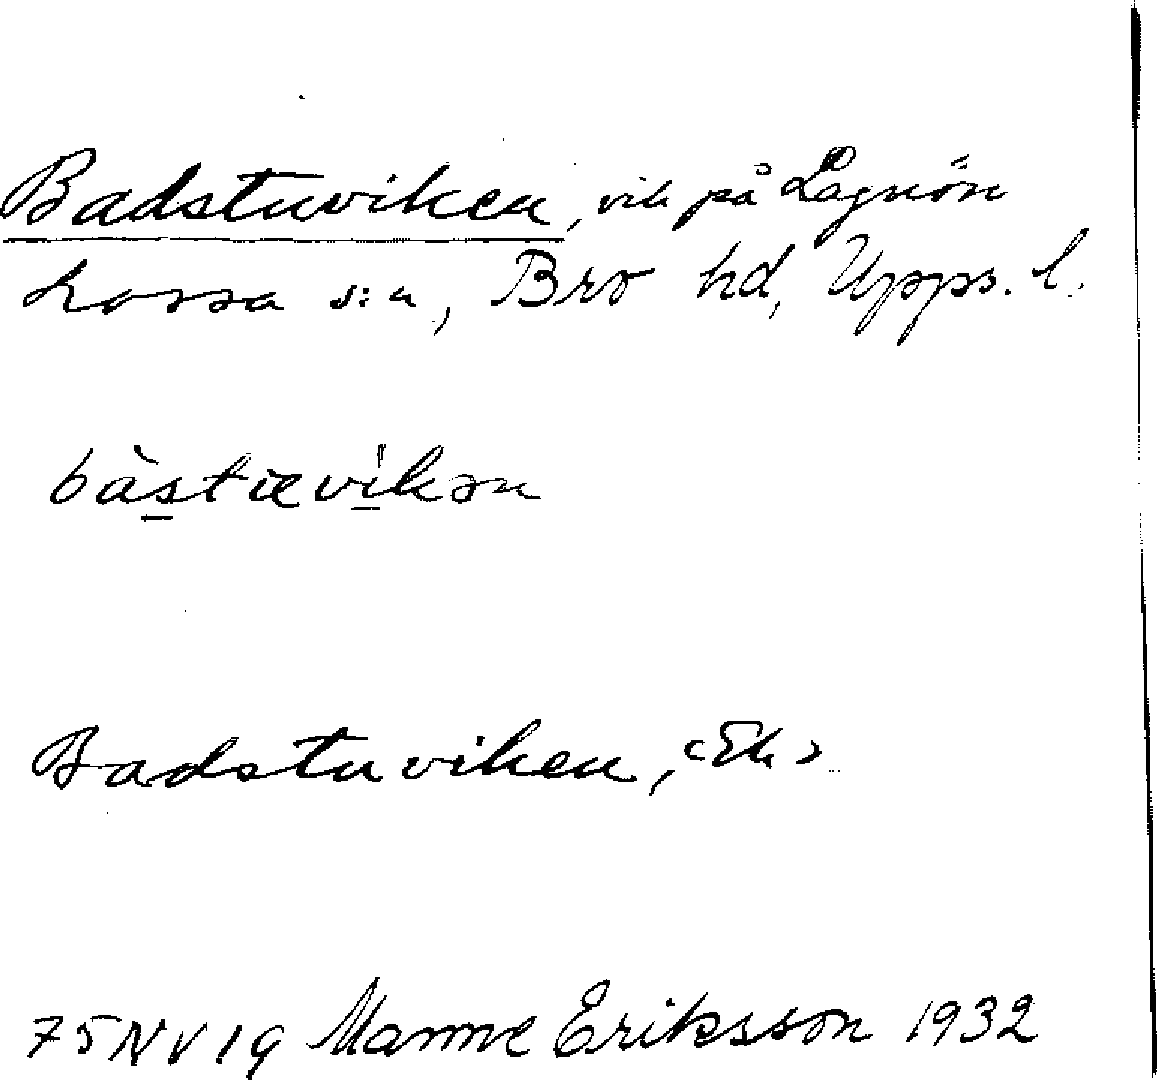 Badstuviken, vik på Lagnön
Lossa s:n, Bro hd, Upps. l.
bàstævikən
Badstuviken, <Ek>
75 NV 19 Manne Eriksson 1932